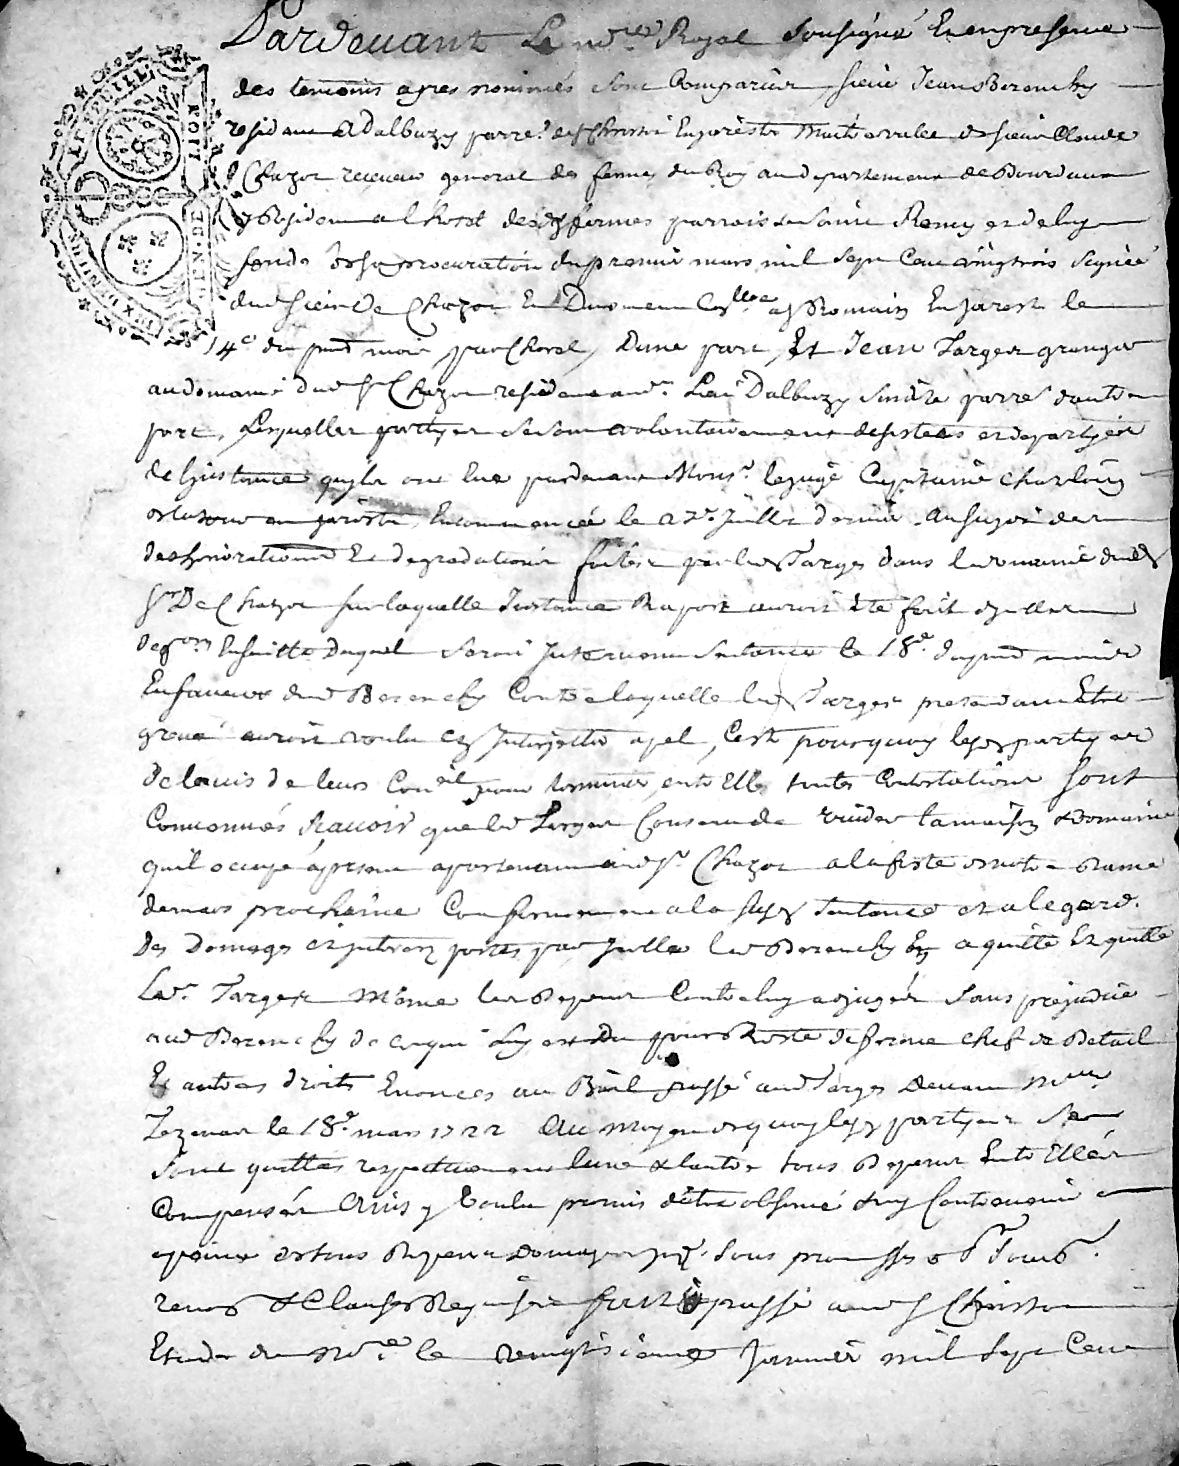 Pardevant Le no.re Royal Soussigné Et en presence
des temoins apres nommés sont Comparus sieur Jean Berenchy
residant a Dalbuzy parre. de St Christo En jarest sieur Claude
Chazot receveur general des fermes du Roy au departement de Bourdeaux
y Residant a l'hotel desd. fermes parroisse Saint Remy et de luy
fondé de sa procuration du premier mars mil sept Cent vingt trois signée
dud. sieur De Chazot Romain En Jarest le
14e du pnt mois par Chorel, Dune part, Et Jean Targe granger
au domaine dud. Sr Chazot residant aud. Lieu Dalbuzy susdite parre. dautre
part, Lesquelles partyes se sont volontairement desistées et departyes
de Linstance quyls ont Eue pardevant Mons.r le juge Capitaine Chatelain
en jarest, Encommencée le juillet dernier. au sujet des
deteriorations Et degradations faites par led. Targe dans le domaine dud.
Sr De Chazot sur laquelle Instance Raport auroit Eté fait
Ensuitte Duquel seroit Intervenu Sentence le 18e. du pnt mois
En faveur dud. Berenchy Contre laquelle led. Targe pretendant Etre
grevé auroit voulu En Interjetter apel, Cest pourquoy lesd. partyes
De lavis de leurs Conseil pour terminer entre Elles toutes Contestations sont
Convenües scavoir que led. Targe Consent de vuider la maison & domaine
quil occupe a present apartenant aud. Sr. Chazot a la feste de notre Dame
de mars prochaine Conformement a la susd. Sentence et a legard.
Des Domages et interetz portés par Icelle led. Berenchy En a quitté Et quitte
Led. Targe Même les Depens Contre luy adjugés sans prejudice
aud. Berenchy de ce qui Luy est Du pour Reste de ferme chef de Betail
Et autres droits Enoncés au Bail passé aud. Targe Devant
Tezenas le 18e. mars 1722 Au moyen de quoy lesd. partyes se
sont quittes respectivement lune & lautre tous Depens Entre Elles
Compensés Ainsy Voulu promis detre observé & ny Contrevenir a
peine de tous Depens Domages. sous promesses
renon. & Clauses Requises fait & passé aud. St Christo
Etude du no.re le vingtsieme Janvier mil Sept Cent